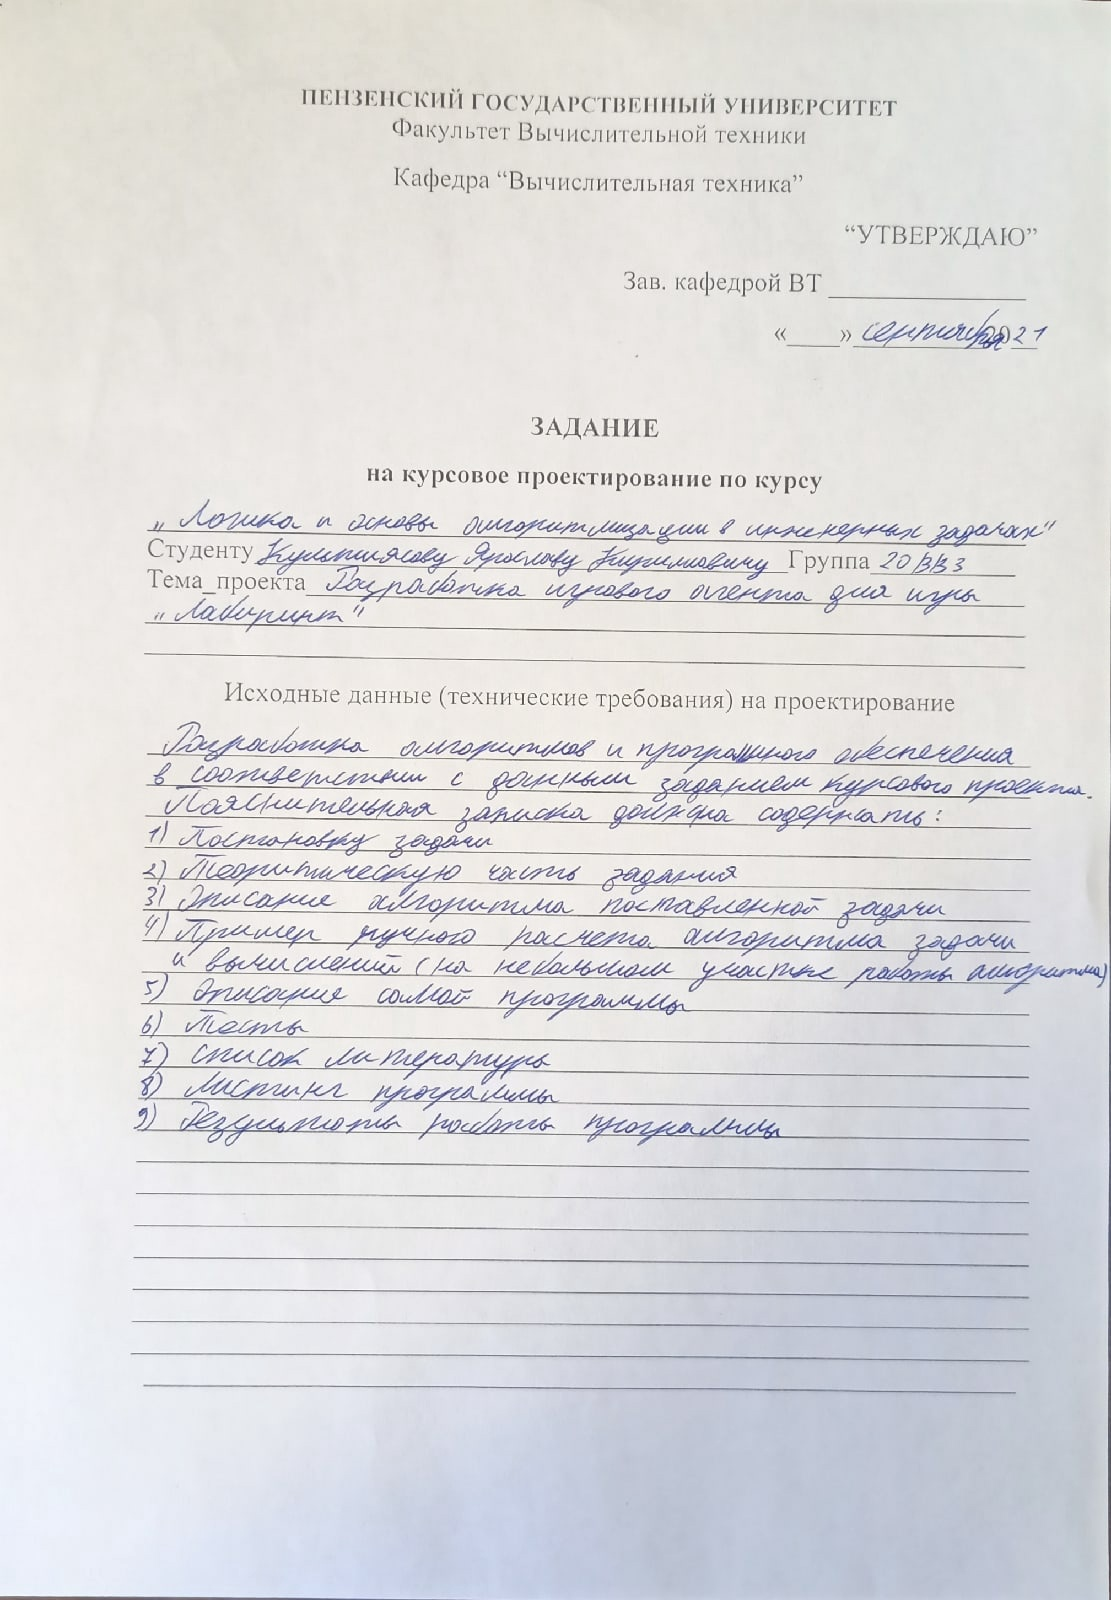 ПЕНЗЕНСКИЙ ГОСУДАРСТВЕННЫЙ УНИВЕРСИТЕТ
Факультет Вычислительной техники
Кафедра “Вычислительная техника”
“УТВЕРЖДАЮ”
Зав. кафедрой ВТ ______________
«____» сентября 2021
ЗАДАНИЕ
на курсовое проектирование по курсу
„Логика и основы алгоритмизации в инженерных задачах"
Студенту Ярославу Кирилловичу Группа 20ВВ3
Тема_проекта Разработка игрового агента для игры
„Лабиринт"
Исходные данные (технические требования) на проектирование
Разработка алгоритмов и программного обеспечения
в соответствии с данным заданием курсового проекта.
Пояснительная записка должна содержать:
1) Постановку задачи
2) Теоритическую часть задания
3) Описание алгоритма поставленной задачи
4) Пример ручного расчета алгоритма задачи
и вычислений (на небольшом участке работы алгоритма)
5) Описание самой программы
6) Тесты
7) Список литературы
8) Листинг программы
9) Результаты работы программы